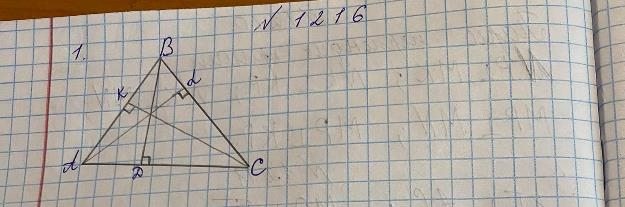 № 1216
1.
B
K L
A D C